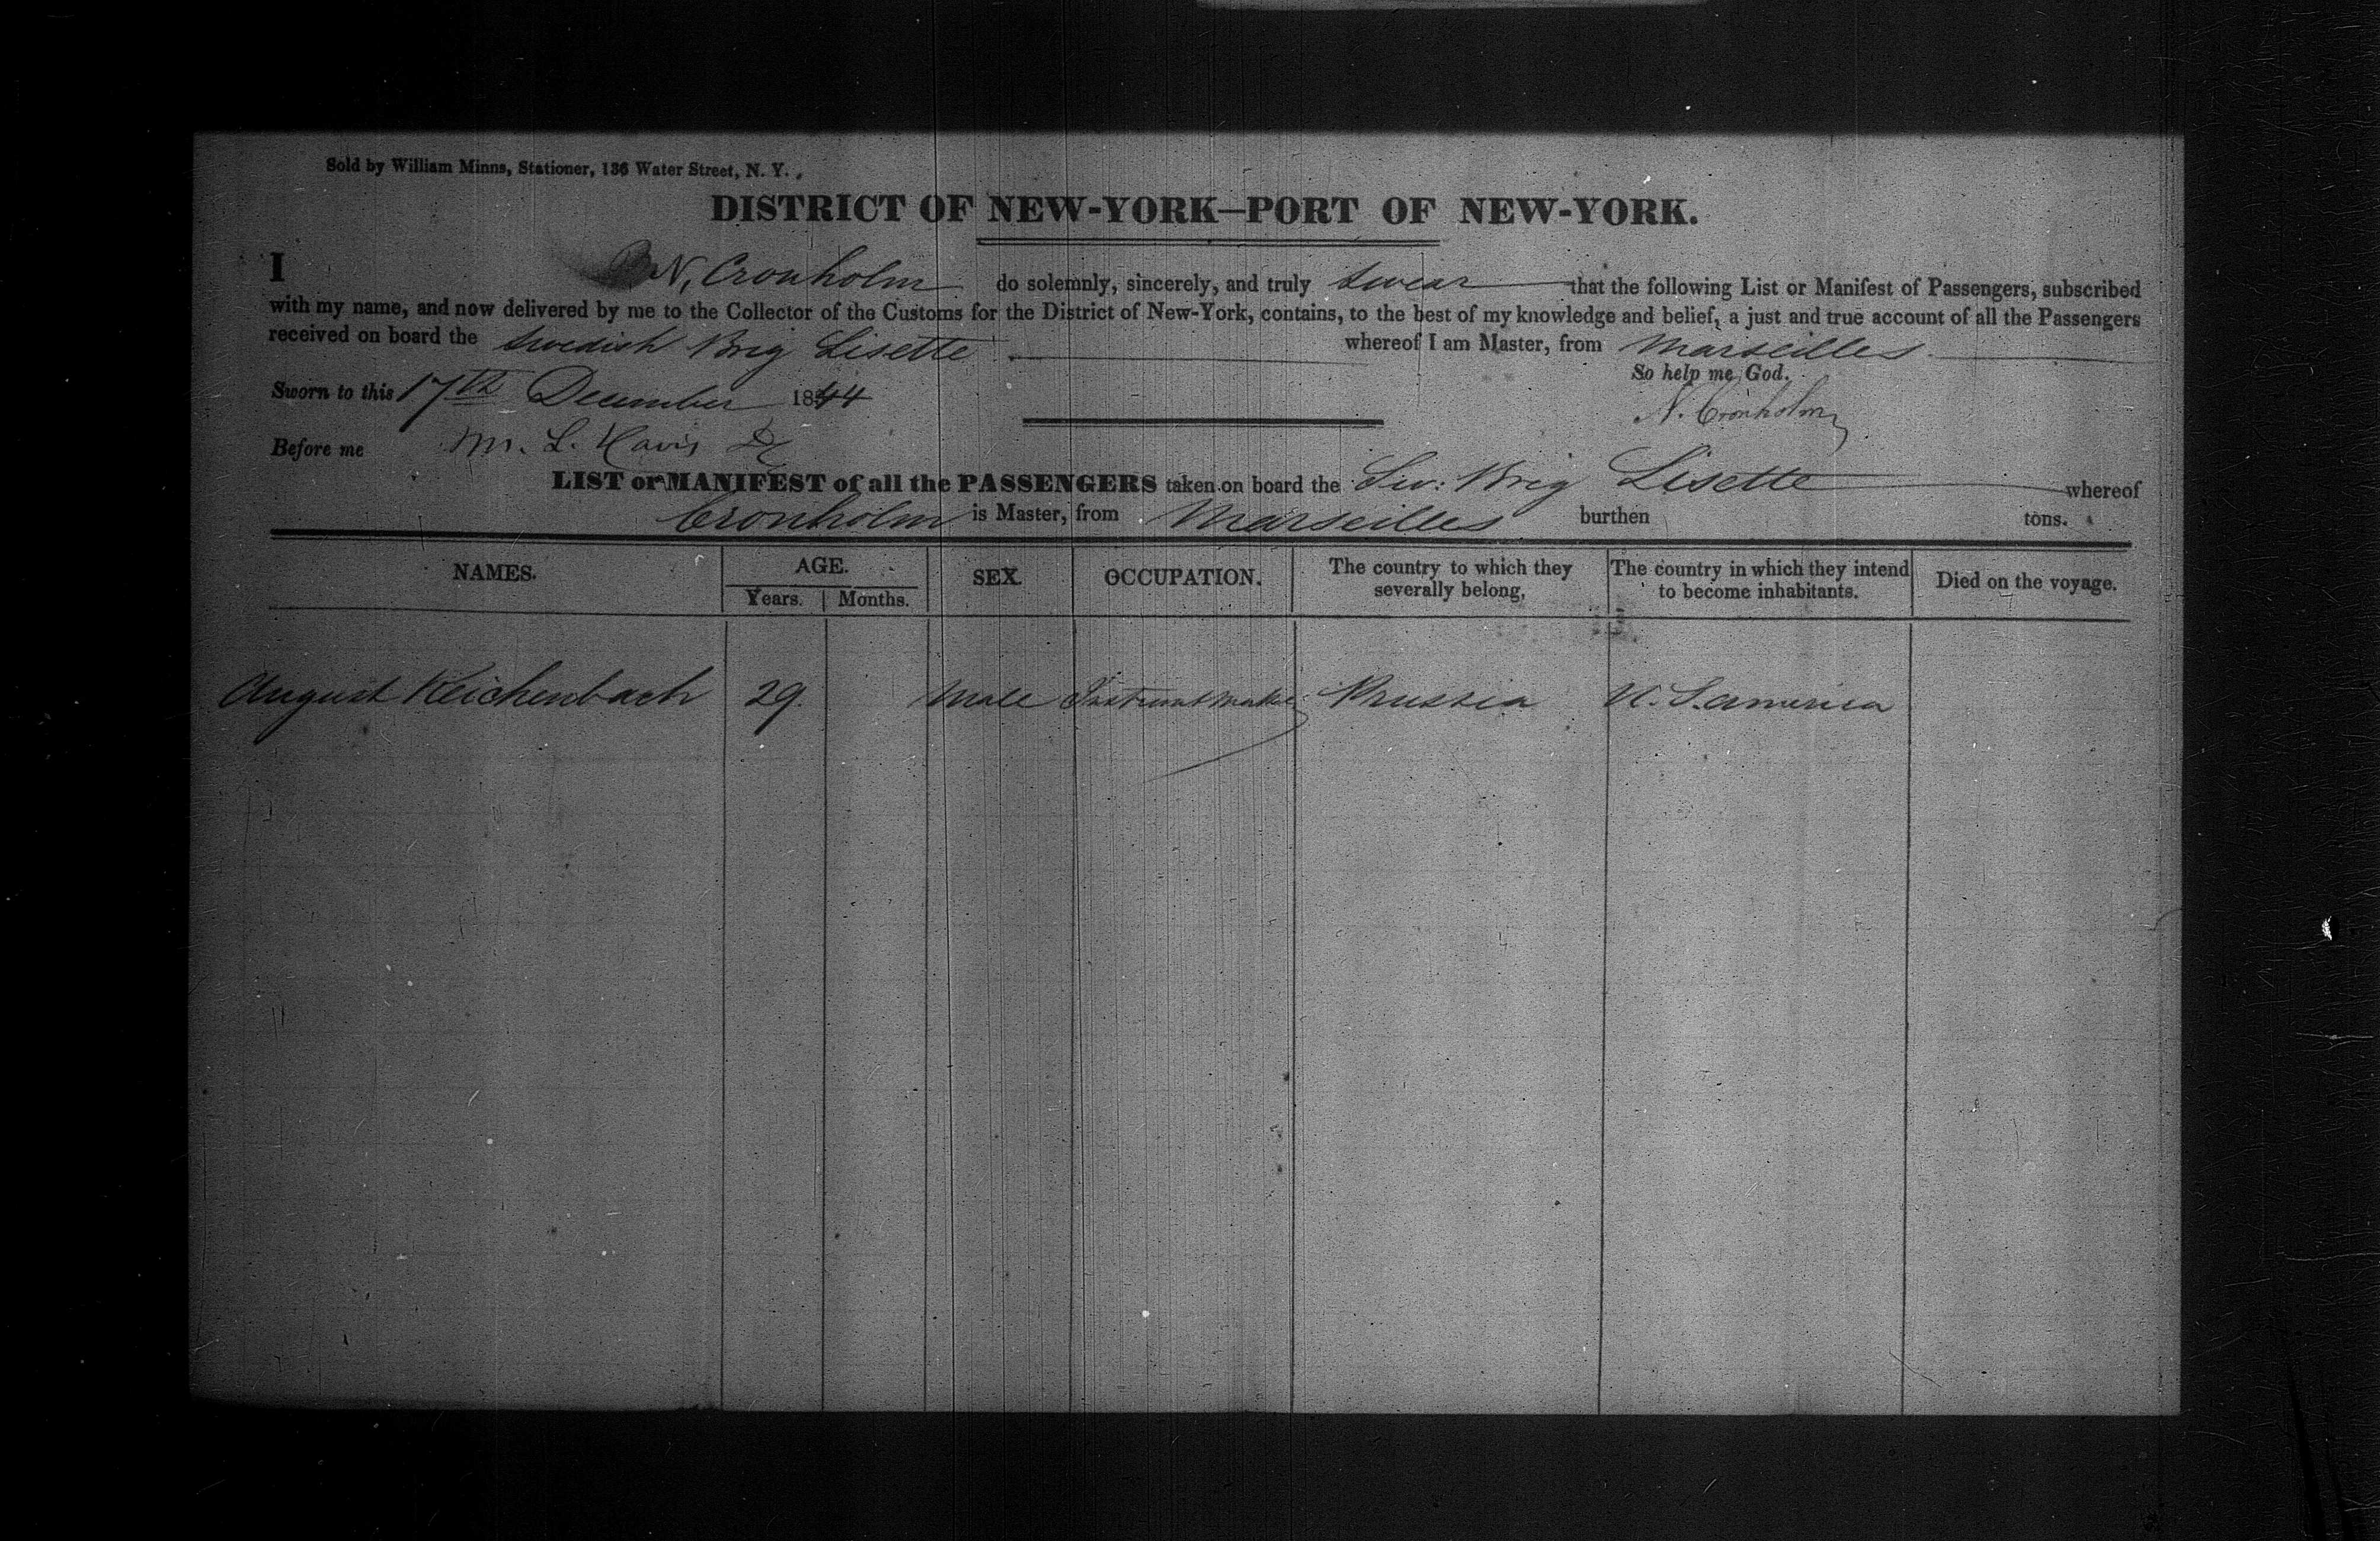 Sold by William Minns, Stationer, 136 Water Street, N. Y.
DISTRICT OF NEW-YORK—PORT OF NEW-YORK.
I N. Cronholm do solemnly, sincerely, and truly swear that the following List or Manifest of Passengers, subscribed
with my name, and now delivered by me to the Collector of the Customs for the District of New-York, contains, to the best of my knowledge and belief, a just and true account of all the Passengers
received on board the Swedish Brig Lisette whereof I am Master, from Marseilles.
So help me God.
Sworn to this 17th December 1844
N. Cronholm
Before me M. L. Davis
LIST or MANIFEST of all the PASSENGERS taken on board the Sw: Brig Lisette whereof
Cronholm is Master, from Marseilles burthen tons.
NAMES. AGE. SEX. OCCUPATION. The country to which they severally belong, The country in which they intend to become inhabitants. Died on the voyage.
Years. Months.
August Reichenbach 29. Male Prussia U. S. america